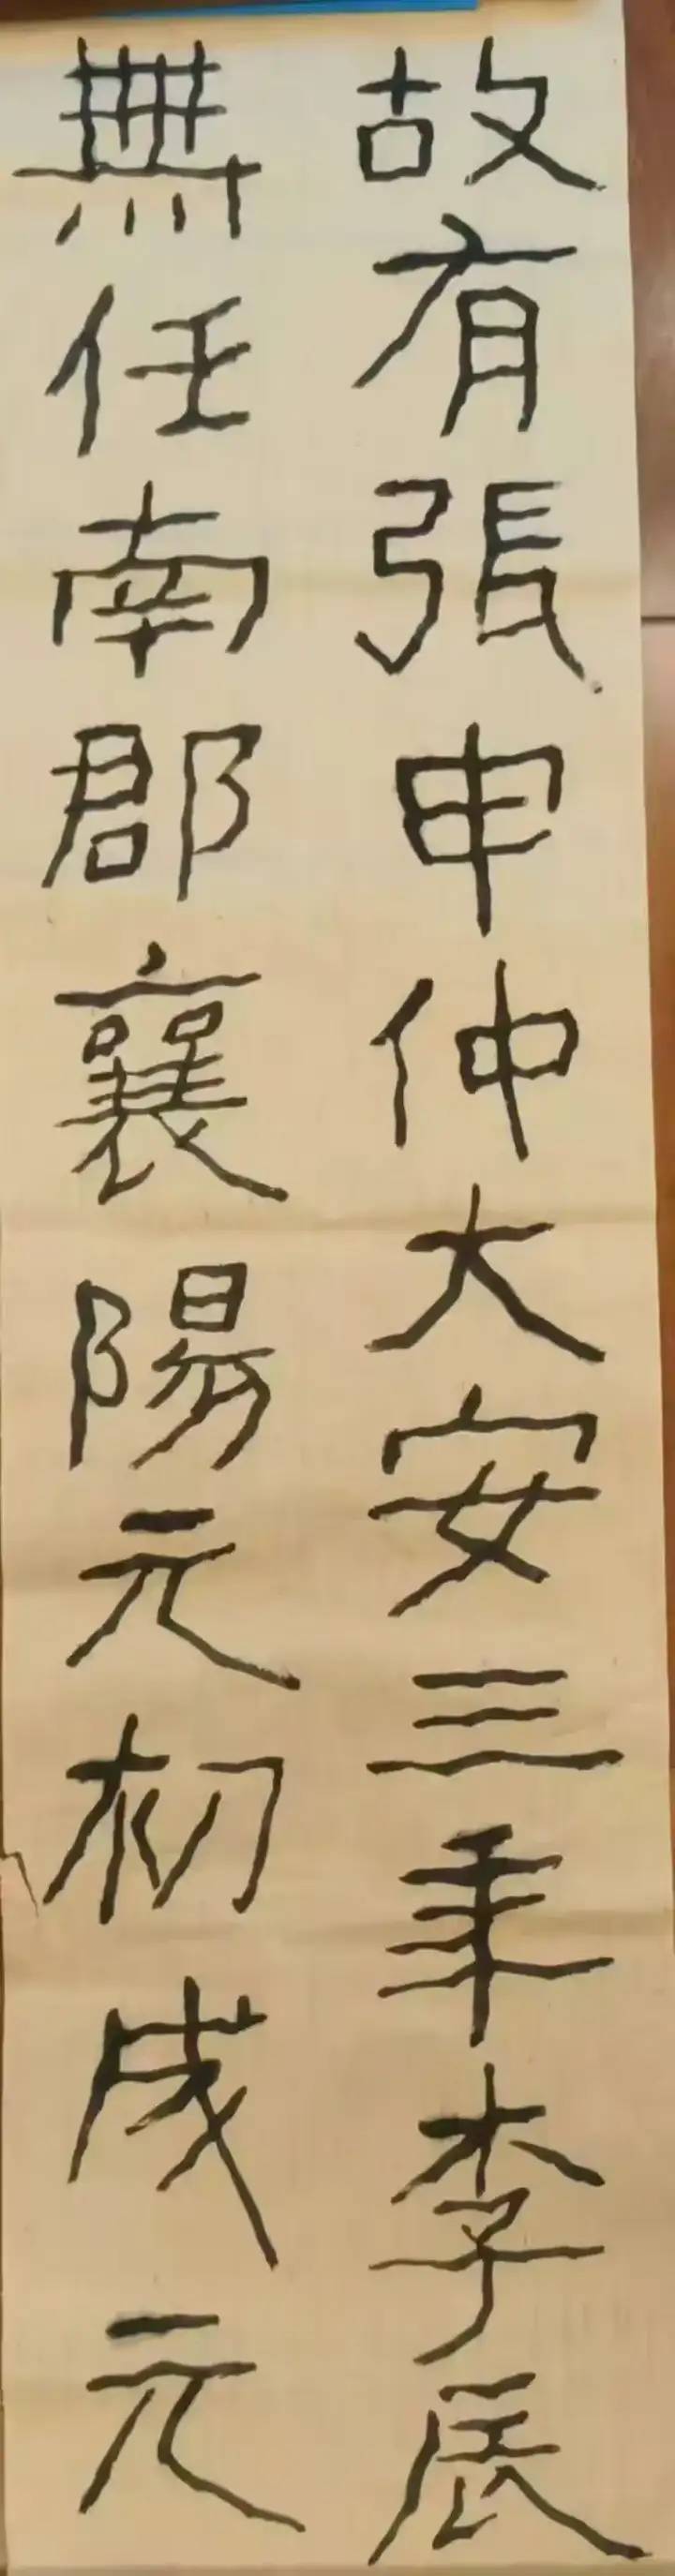 故有張申仲大安三年李辰
無任南郡襄陽元初成元